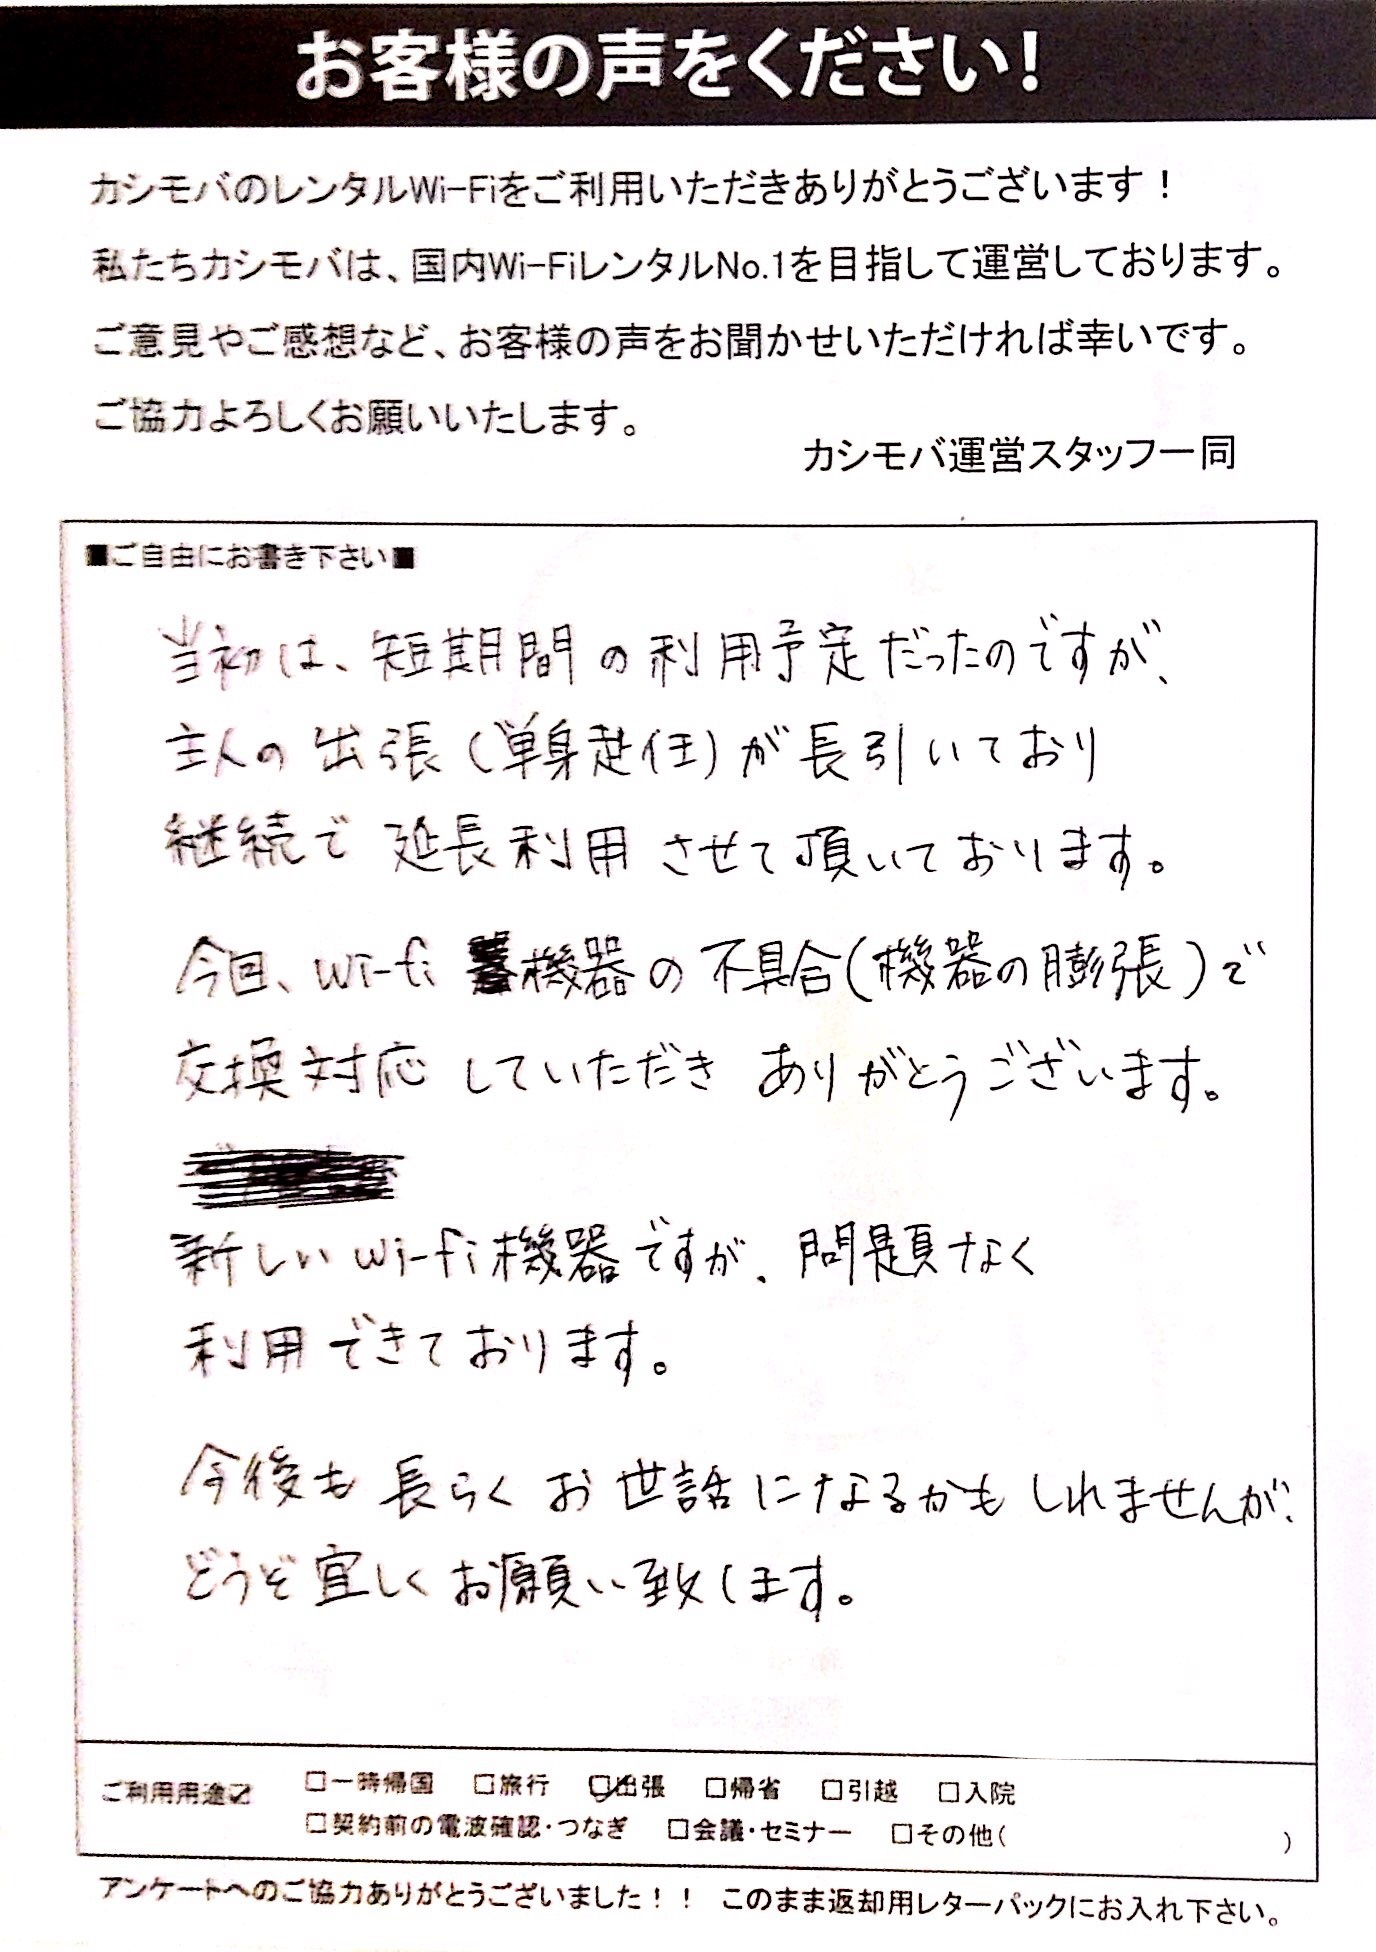 お客様の声をください!
カシモバのレンタルWi-Fiをご利用いただきありがとうございます！
私たちカシモバは、国内Wi-FiレンタルNo.1を目指して運営しております。
ご意見やご感想など、お客様の声をお聞かせいただければ幸いです。
ご協力よろしくお願いいたします。
カシモバ運営スタッフ一同
■ご自由にお書き下さい■
当初は、短期間の利用予定だったのですが、
主人の出張(単身赴任)が長引いており
継続で延長利用させて頂いております。
今回、Wi-fi機器の不具合(機器の膨張)で
交換対応していただきありがとうございます。
新しいWi-fi機器ですが、問題なく
利用できております。
今後も長らくお世話になるかもしれませんが、
どうぞ宜しくお願い致します。
ご利用用途☑ □一時帰国 □旅行 ☑出張 □帰省 □引越 □入院
□契約前の電波確認・つなぎ □会議・セミナー □その他( )
アンケートへのご協力ありがとうございました！！ このまま返却用レターパックにお入れ下さい。